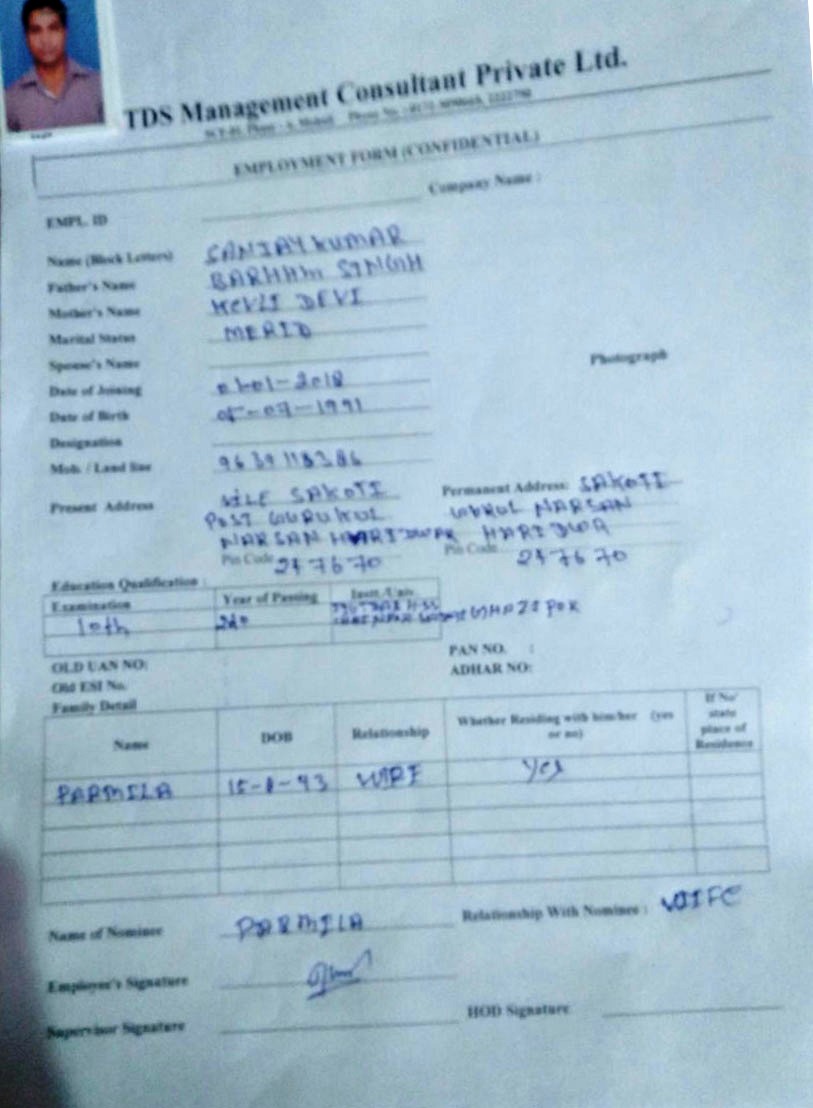 TDS Management Consultant Private Ltd.
EMPLOYMENT FORM (CONFIDENTIAL)
Company Name :
EMPL. ID
Name (Block Letters) SANJAY KUMAR
Father's Name BARHAM SINGH
Mother's Name DEVI
Marital Status MERID
Spouse's Name
Photograph
Date of Joining 01-01-2018
Date of Birth 05-07-1991
Designation
Mob. / Land line
Present Address SAKOTI Permanent Address: SAKOTI
POST GURUKUL NARSAN
NARSAN HARIDWAR HARIDWA
Pin Code 247670 Pin Code 247670
Education Qualification :
Examination Year of Passing Instt./Univ.
10th
OLD UAN NO: PAN NO. :
Old ESI No. ADHAR NO:
Family Detail
Name DOB Relationship Whether Residing with him/her (yes or no) If No/ state place of Residence
PARMILA WIFE Yes
Name of Nominee PARMILA Relationship With Nominee : WIFE
Employee's Signature
Supervisor Signature HOD Signature